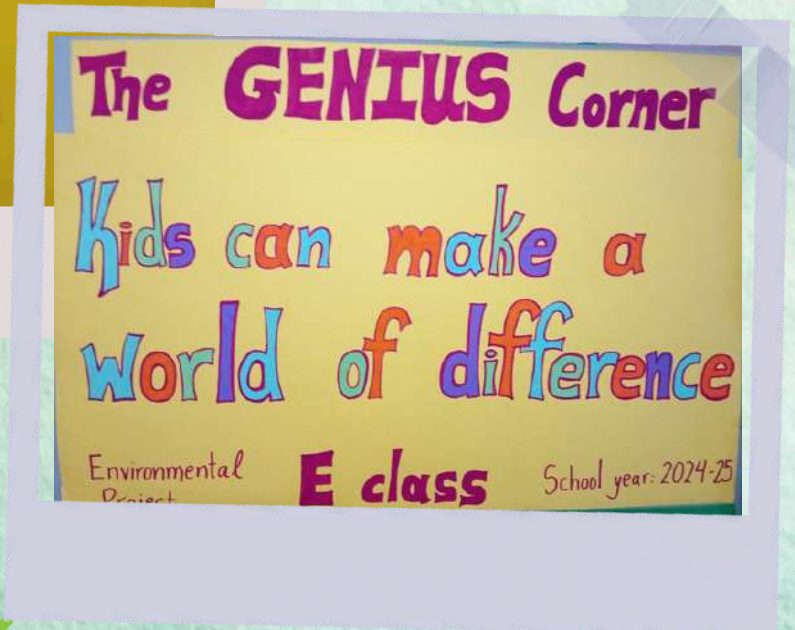 The GENIUS Corner
Kids can make a
world of difference
Environmental
Project
E class
School year: 2024-25